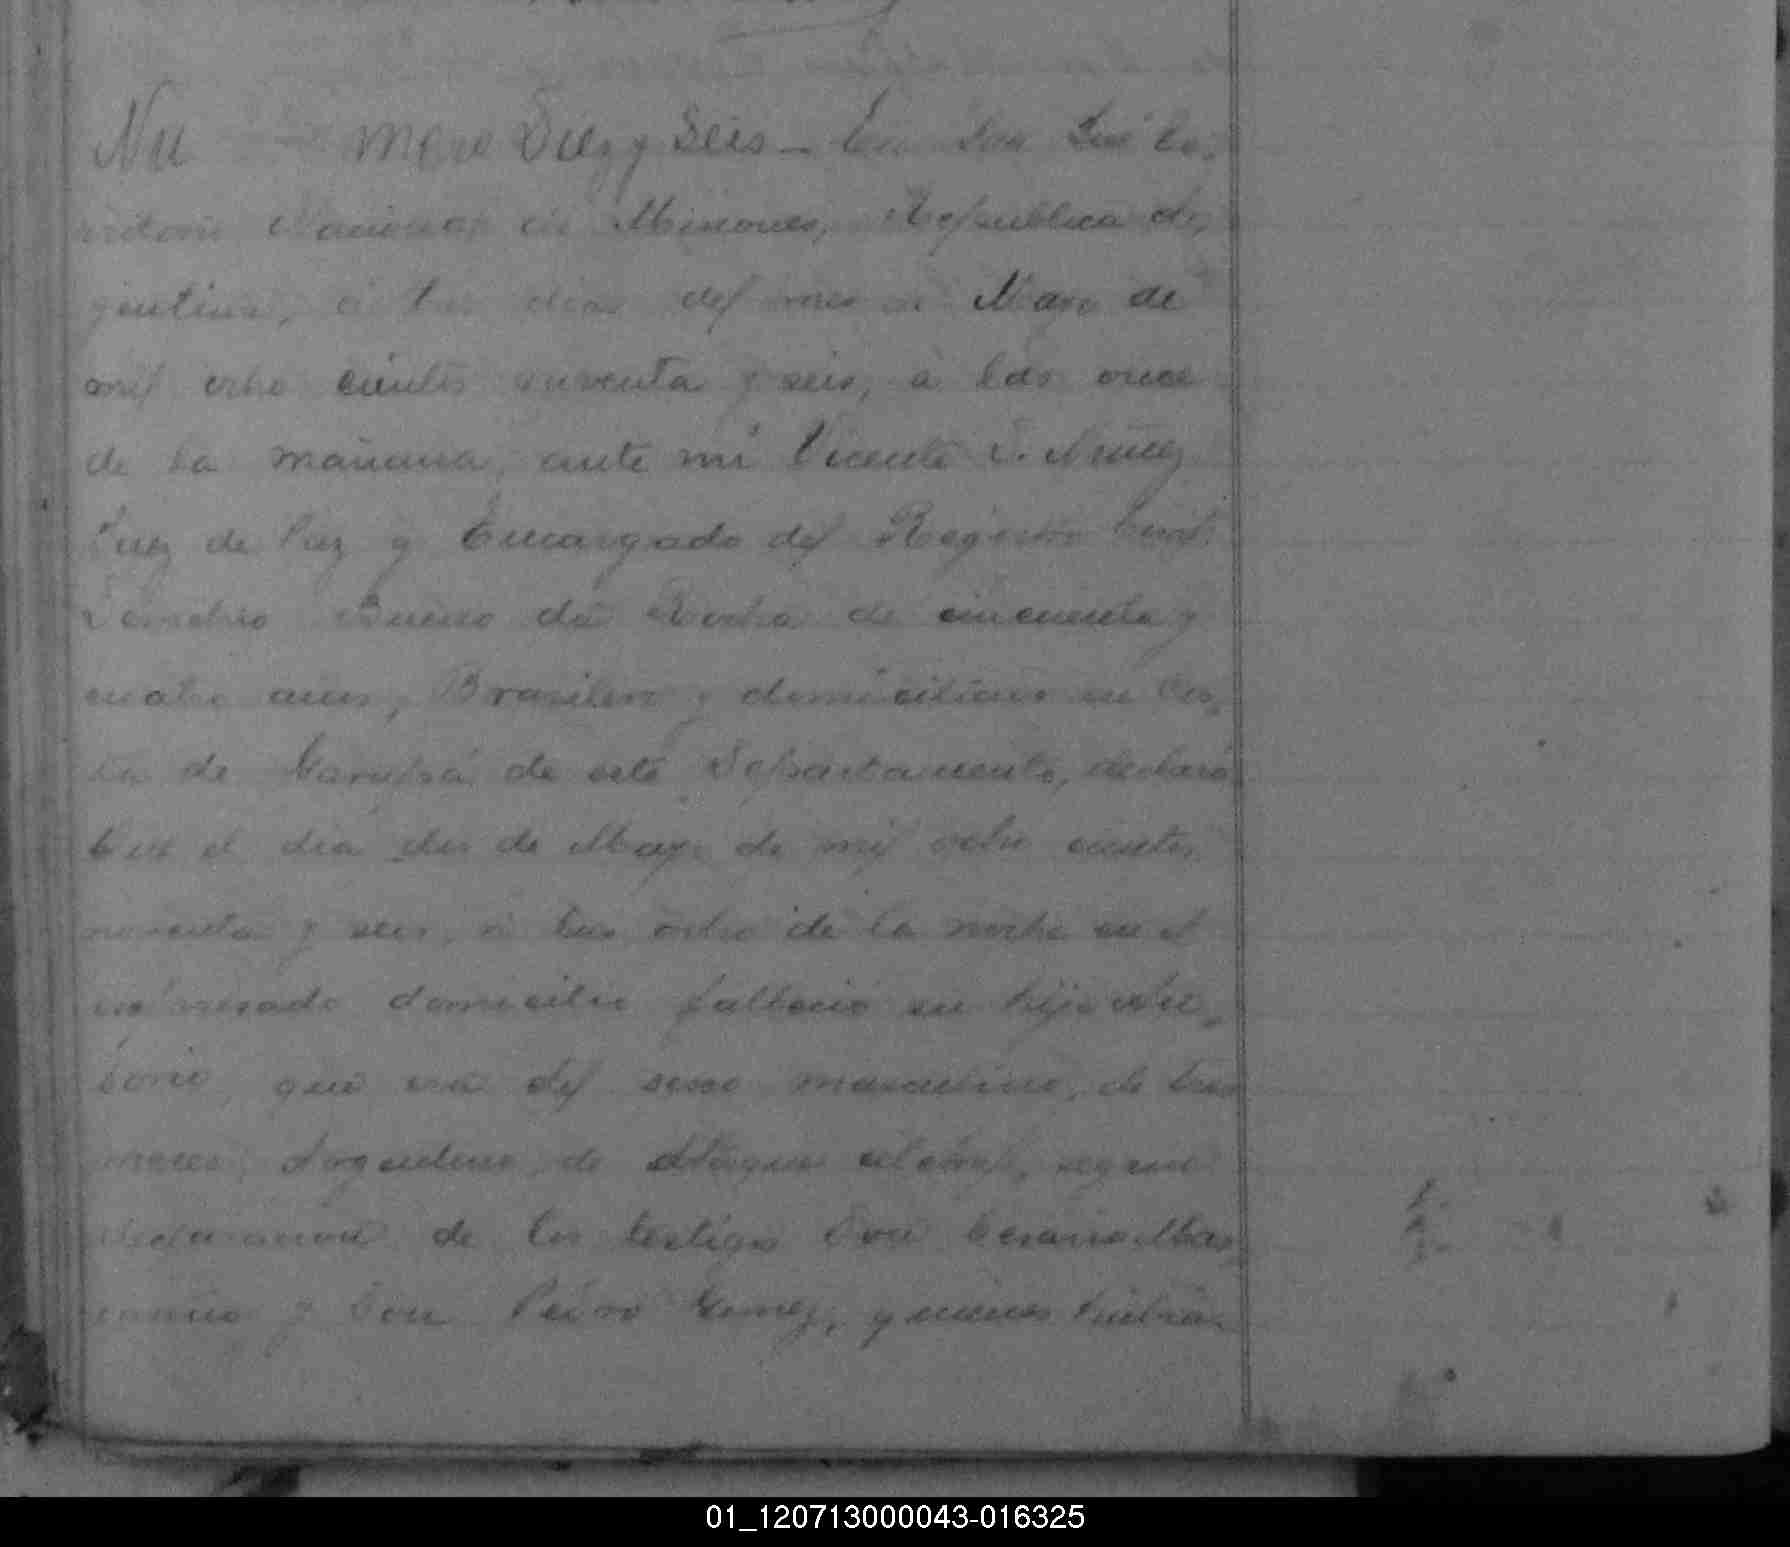 Nu mero Diez y Seis - En San José Te-
rritorio Nacional de Misiones, Republica Ar-
gentina, á tres dias del mes de Mayo de
mil ocho cientos noventa y seis, á las once
de la mañana, ante mi Vicente S. Nuñez
Juez de Paz y Encargado del Registro Civil
Bueno da Rocha de cincuenta y
cuatro años, Brasilero y domiciliado en Cos-
ta de Garupá de este Departamento, declaró
Que el dia dos de Mayo de mil ocho cientos
noventa y seis, á las ocho de la noche en el
expresado domicilio falleció su hijo
que era del sexo masculino, de tres
meses, Argentino, de Ataque según
declaracion de los testigos Don Cesario Mas-
y Don Pedro Gomez, quienes
01_120713000043-016325